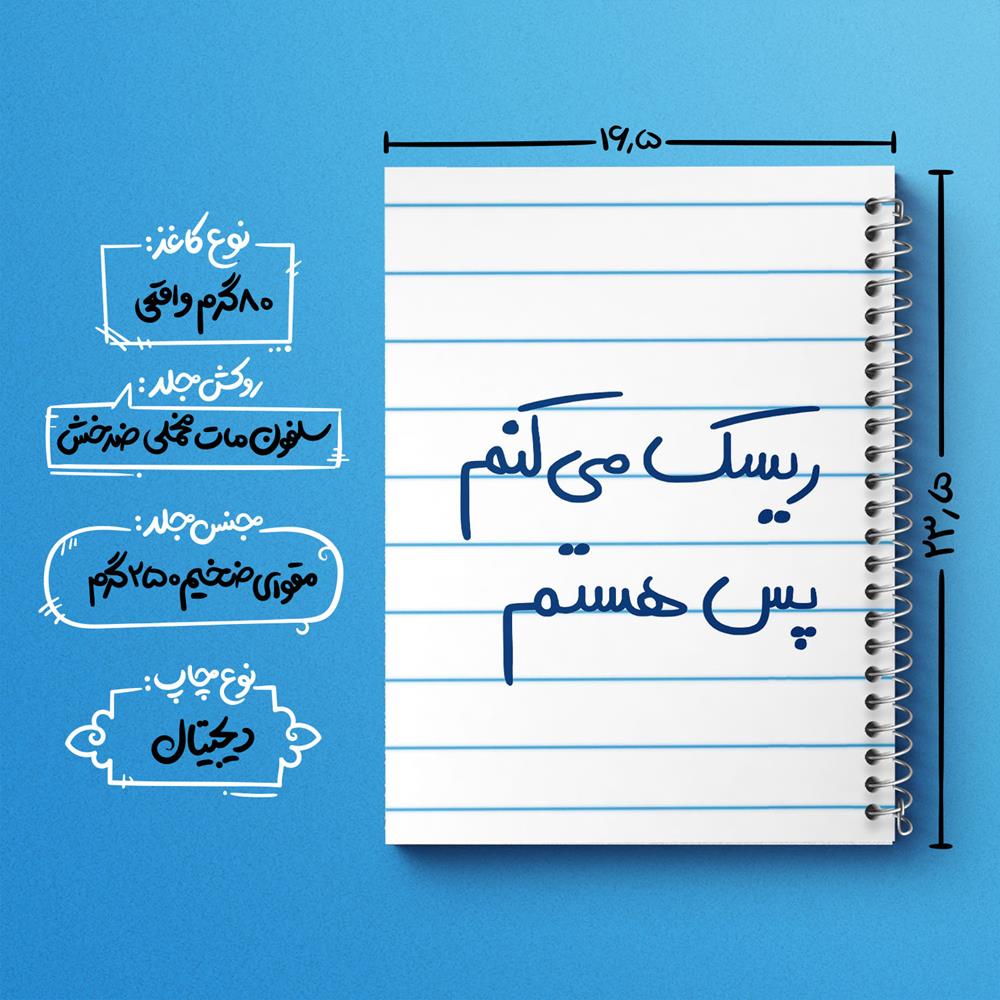 ۱۶٫۵
۲۳٫۵
ریسک می‌کنم
پس هستم
نوع کاغذ:
۸۰ گرم واقعی
روکش جلد:
سلفون مات مخملی ضدخش
جنس جلد:
مقوای ضخیم ۲۵۰ گرم
نوع چاپ:
دیجیتال